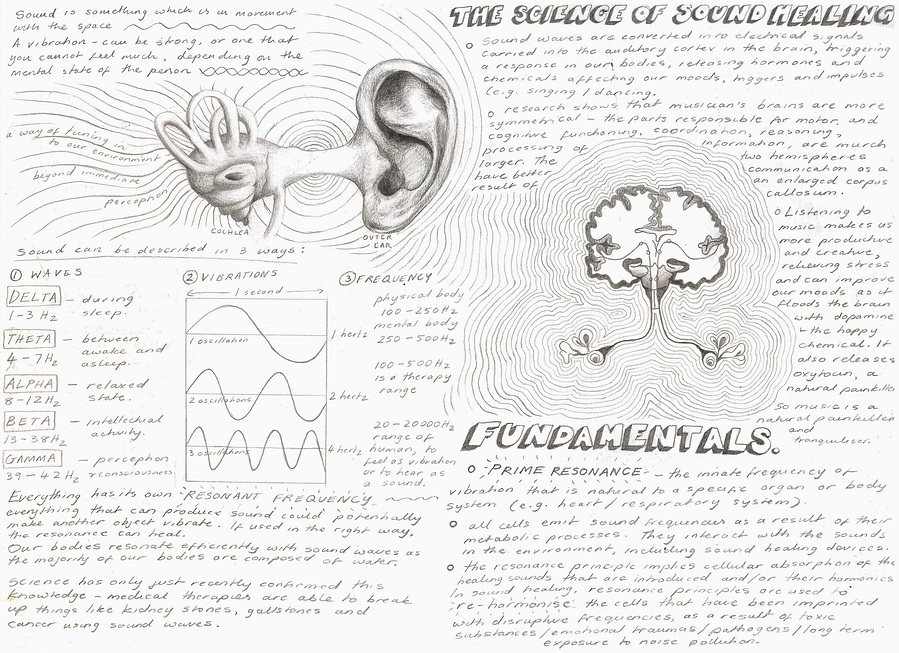 Sound is something which is in movement
with the space
A vibration - can be strong, or one that
you cannot feel much, depending on the
mental state of the person
a way of tuning in
to our environment
beyond immediate
perception
COCHLEA
OUTER
EAR
Sound can be described in 3 ways:
① WAVES
DELTA - during
1-3 Hz sleep.
THETA - between
4-7Hz awake and
asleep.
ALPHA - relaxed
8-12Hz state.
BETA - intellectual
13-38Hz activity.
GAMMA - perception
39-42Hz + consciousness.
② VIBRATIONS
1 second
1 oscillation 1 hertz
2 oscillations 2 hertz
3 oscillations 4 hertz
③ FREQUENCY
physical body
100-250Hz
mental body
250-500Hz
100-500Hz
is a therapy
range
20-20000Hz
range of
human, to
feel as vibration
or to hear as
a sound.
Everything has its own RESONANT FREQUENCY
everything that can produce sound could potentially
make another object vibrate. If used in the right way,
the resonance can heal.
Our bodies resonate efficiently with sound waves as
the majority of our bodies are composed of water.
Science has only just recently confirmed this
knowledge - medical therapies are able to break
up things like kidney stones, gallstones and
cancer using sound waves.
THE SCIENCE OF SOUND HEALING
o Sound waves are converted into electrical signals
carried into the auditory cortex in the brain, triggering
a response in our bodies, releasing hormones and
chemicals affecting our moods, triggers and impulses
(e.g. singing / dancing.
o research shows that musician's brains are more
symmetrical - the parts responsible for motor, and
cognitive functioning, coordination, reasoning,
processing of information, are much
larger. The two hemispheres
have better communication as a
result of an enlarged corpus
callosum.
o Listening to
music makes us
more productive
and creative,
relieving stress
and can improve
our moods as it
floods the brain
with dopamine
- the happy
chemical. It
also releases
oxytoun, a
natural painkiller
So music is a
natural painkiller
and
tranquiliser.
FUNDAMENTALS.
o PRIME RESONANCE - the innate frequency of
vibration that is natural to a specific organ or body
system (e.g. heart / respiratory system).
o all cells emit sound frequencies as a result of their
metabolic processes. They interact with the sounds
in the environment, including sound healing devices.
o the resonance principle implies cellular absorption of the
healing sounds that are introduced and/or their harmonics
In sound healing, resonance principles are used to
're-harmonise' the cells that have been imprinted
with disruptive frequencies, as a result of toxic
substances / emotional traumas / pathogens / long term
exposure to noise pollution.